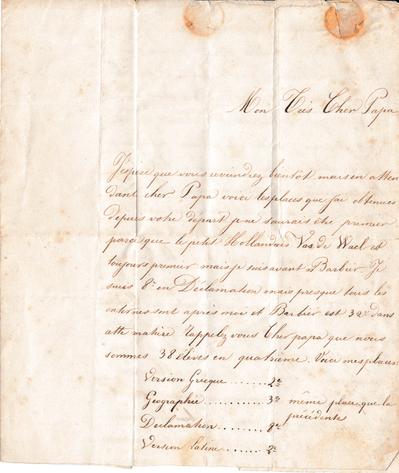 Mon Très Cher Papa
J'espère que vous reviendrez bientôt mais en atten
dant cher Papa voici les places que j'ai obtenues
depuis votre départ je ne saurais être premier
parce que le petit Hollandais Vas de Wael est
toujours premier mais je suis avant Barbier. Je
suis 8e en Déclamation mais presque tous les
externes sont après moi et Barbier est 32e dans
cette matière rappelez vous Cher papa que nous
sommes 38 élèves en quatrième. Voici mes places
Version Grecque ....... 2e
Géographie ....... 3e même place que la
précédente
Declamation ....... 8e
Version latine ....... 2e